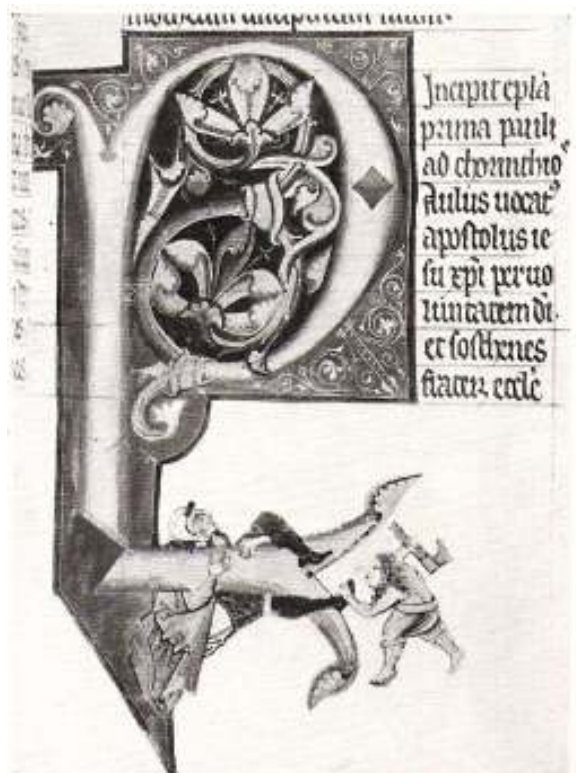 Incipit epla
prima pauli
ad chorinthio
Aulus uocat
apostolus ie
su xpi per uo
luntatem di.
et sosthenes
frater. eccle